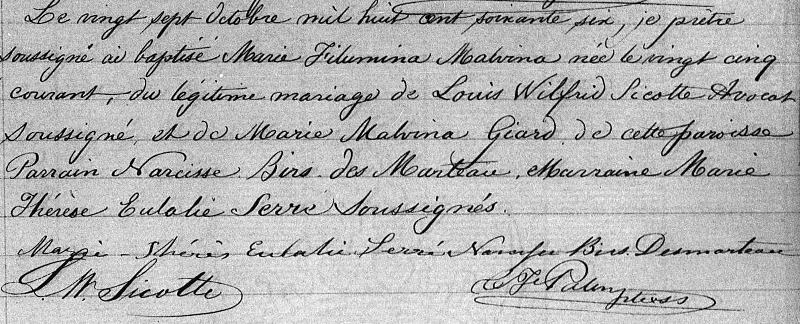 Le vingt sept Octobre mil huit cent soixante six, je prêtre
soussigné ai baptisé Marie Filumina Malvina née le vingt cinq
courant, du légitime mariage de Louis Wilfrid Sicotte Avocat
soussigné, et de Marie Malvina Giard de cette paroisse
Parrain Narcisse Birs des Marteau, Marraine Marie
Thérèse Eulalie Serré soussignés.
Marie Thérès Eulalie Serré Narcisse Birs. Desmarteau
L. W. Sicotte
ptress